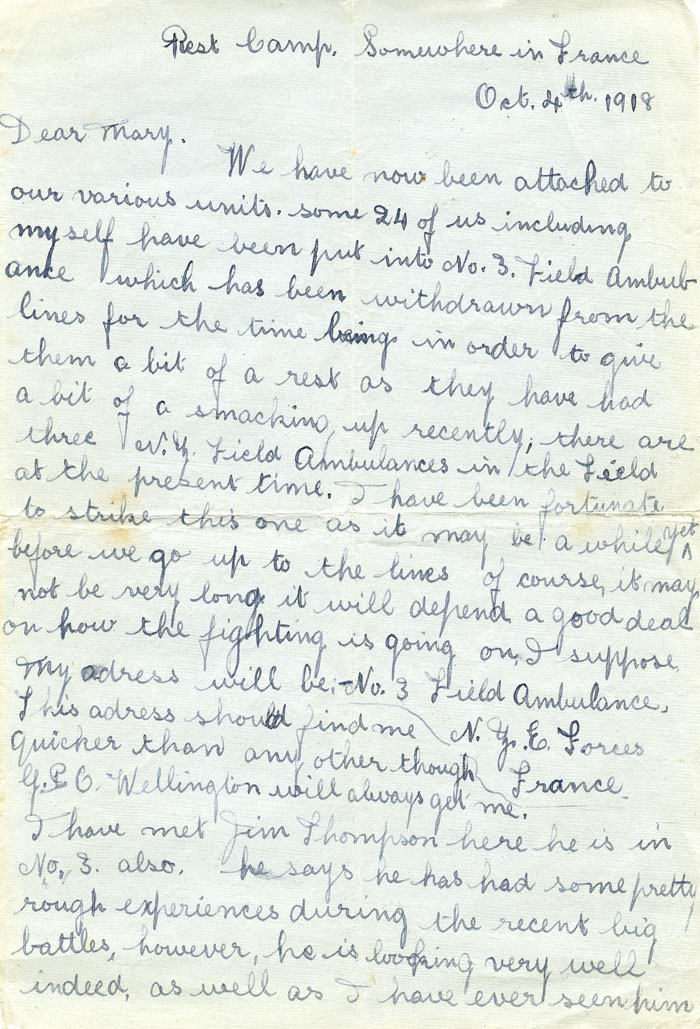 Rest Camp. Somewhere in France
Oct. 4th. 1918
Dear Mary.
We have now been attached to
our various units. some 24 of us including
myself have been put into No. 3. Field Ambul-
ance which has been withdrawn from the
lines for the time being in order to give
them a bit of a rest as they have had
a bit of a smacking up recently, there are
three N.Z. Field Ambulances in the Field
at the present time. I have been fortunate
to strike this one as it may be a while yet
before we go up to the lines of course, it may
not be very long it will depend a good deal
on how the fighting is going on, I suppose
My adress will be:- No. 3 Field Ambulance,
This adress should find me N.Z.E. Forces
quicker than any other though France
G.P.O. Wellington will always get me.
I have met Jim Thompson here he is in
No. 3. also. he says he has had some pretty
rough experiences during the recent big
battles, however, he is looking very well
indeed, as well as I have ever seen him